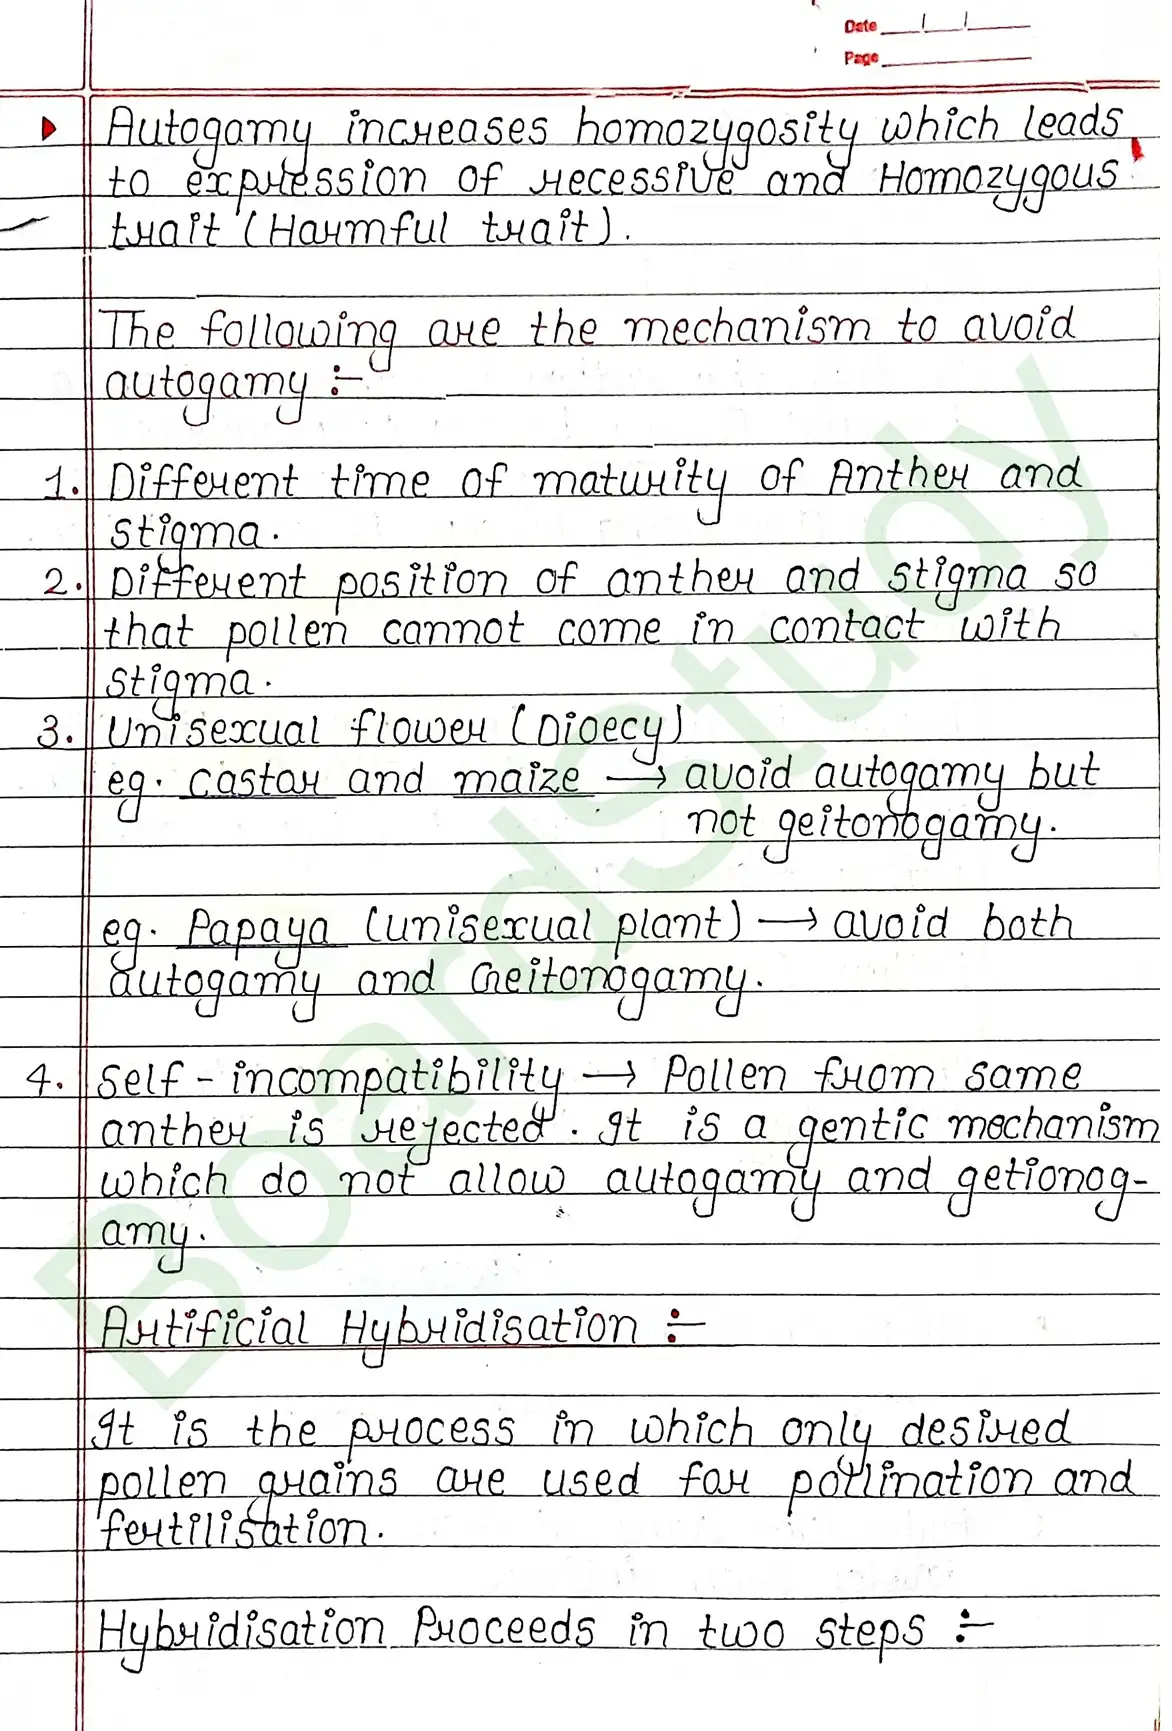 Date
Page
Autogamy increases homozygosity which leads
to expression of recessive and Homozygous
trait (Harmful trait).
The following are the mechanism to avoid
autogamy :-
1. Different time of maturity of Anther and
stigma.
2. Different position of anther and stigma so
that pollen cannot come in contact with
stigma.
3. Unisexual flower (Dioecy)
eg. castor and maize → avoid autogamy but
not geitonogamy.
eg. Papaya (unisexual plant) → avoid both
autogamy and Geitonogamy.
4. Self-incompatibility → Pollen from same
anther is rejected. It is a gentic mechanism
which do not allow autogamy and getionog-
amy.
Artificial Hybridisation :-
It is the process in which only desired
pollen grains are used for pollination and
fertilisation.
Hybridisation Proceeds in two steps :-
BoardStudy